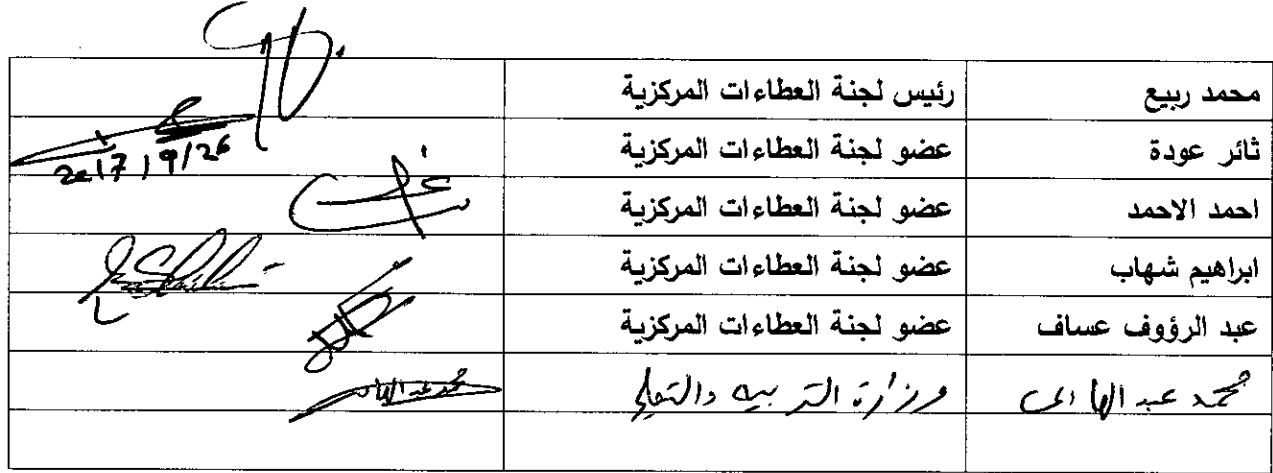 محمد ربيع رئيس لجنة العطاءات المركزية
ثائر عودة عضو لجنة العطاءات المركزية
2017/9/26
احمد الاحمد عضو لجنة العطاءات المركزية
ابراهيم شهاب عضو لجنة العطاءات المركزية
عبد الرؤوف عساف عضو لجنة العطاءات المركزية
محمد عبد الهادي وزارة التربيه والتعليم